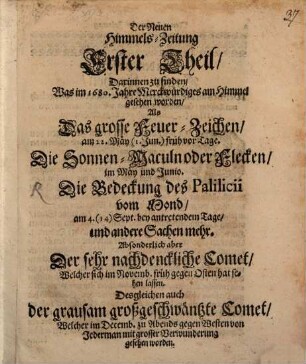 Der Neuen
Himmels-Zeitung
Erster Theil/
Darinnen zu finden/
Was im 1680. Jahre Merckwürdiges am Himmel
gesehen worden/
Als
Das grosse Feuer-Zeichen/
am 22. May (1. Jun.) früh vor Tage.
Die Sonnen-Maculn oder Flecken/
im May und Junio.
Die Bedeckung des Palilicii
vom Mond/
am 4. (14) Sept. bey antretendem Tage/
und andere Sachen mehr.
Absonderlich aber
Der sehr nachdenckliche Comet/
Welcher sich im Novemb. früh gegen Osten hat se-
hen lassen.
Desgleichen auch
der grausam großgeschwäntzte Comet/
Welcher im Decemb. zu Abends gegen Westen von
Jederman mit grosser Verwunderung
gesehen worden.